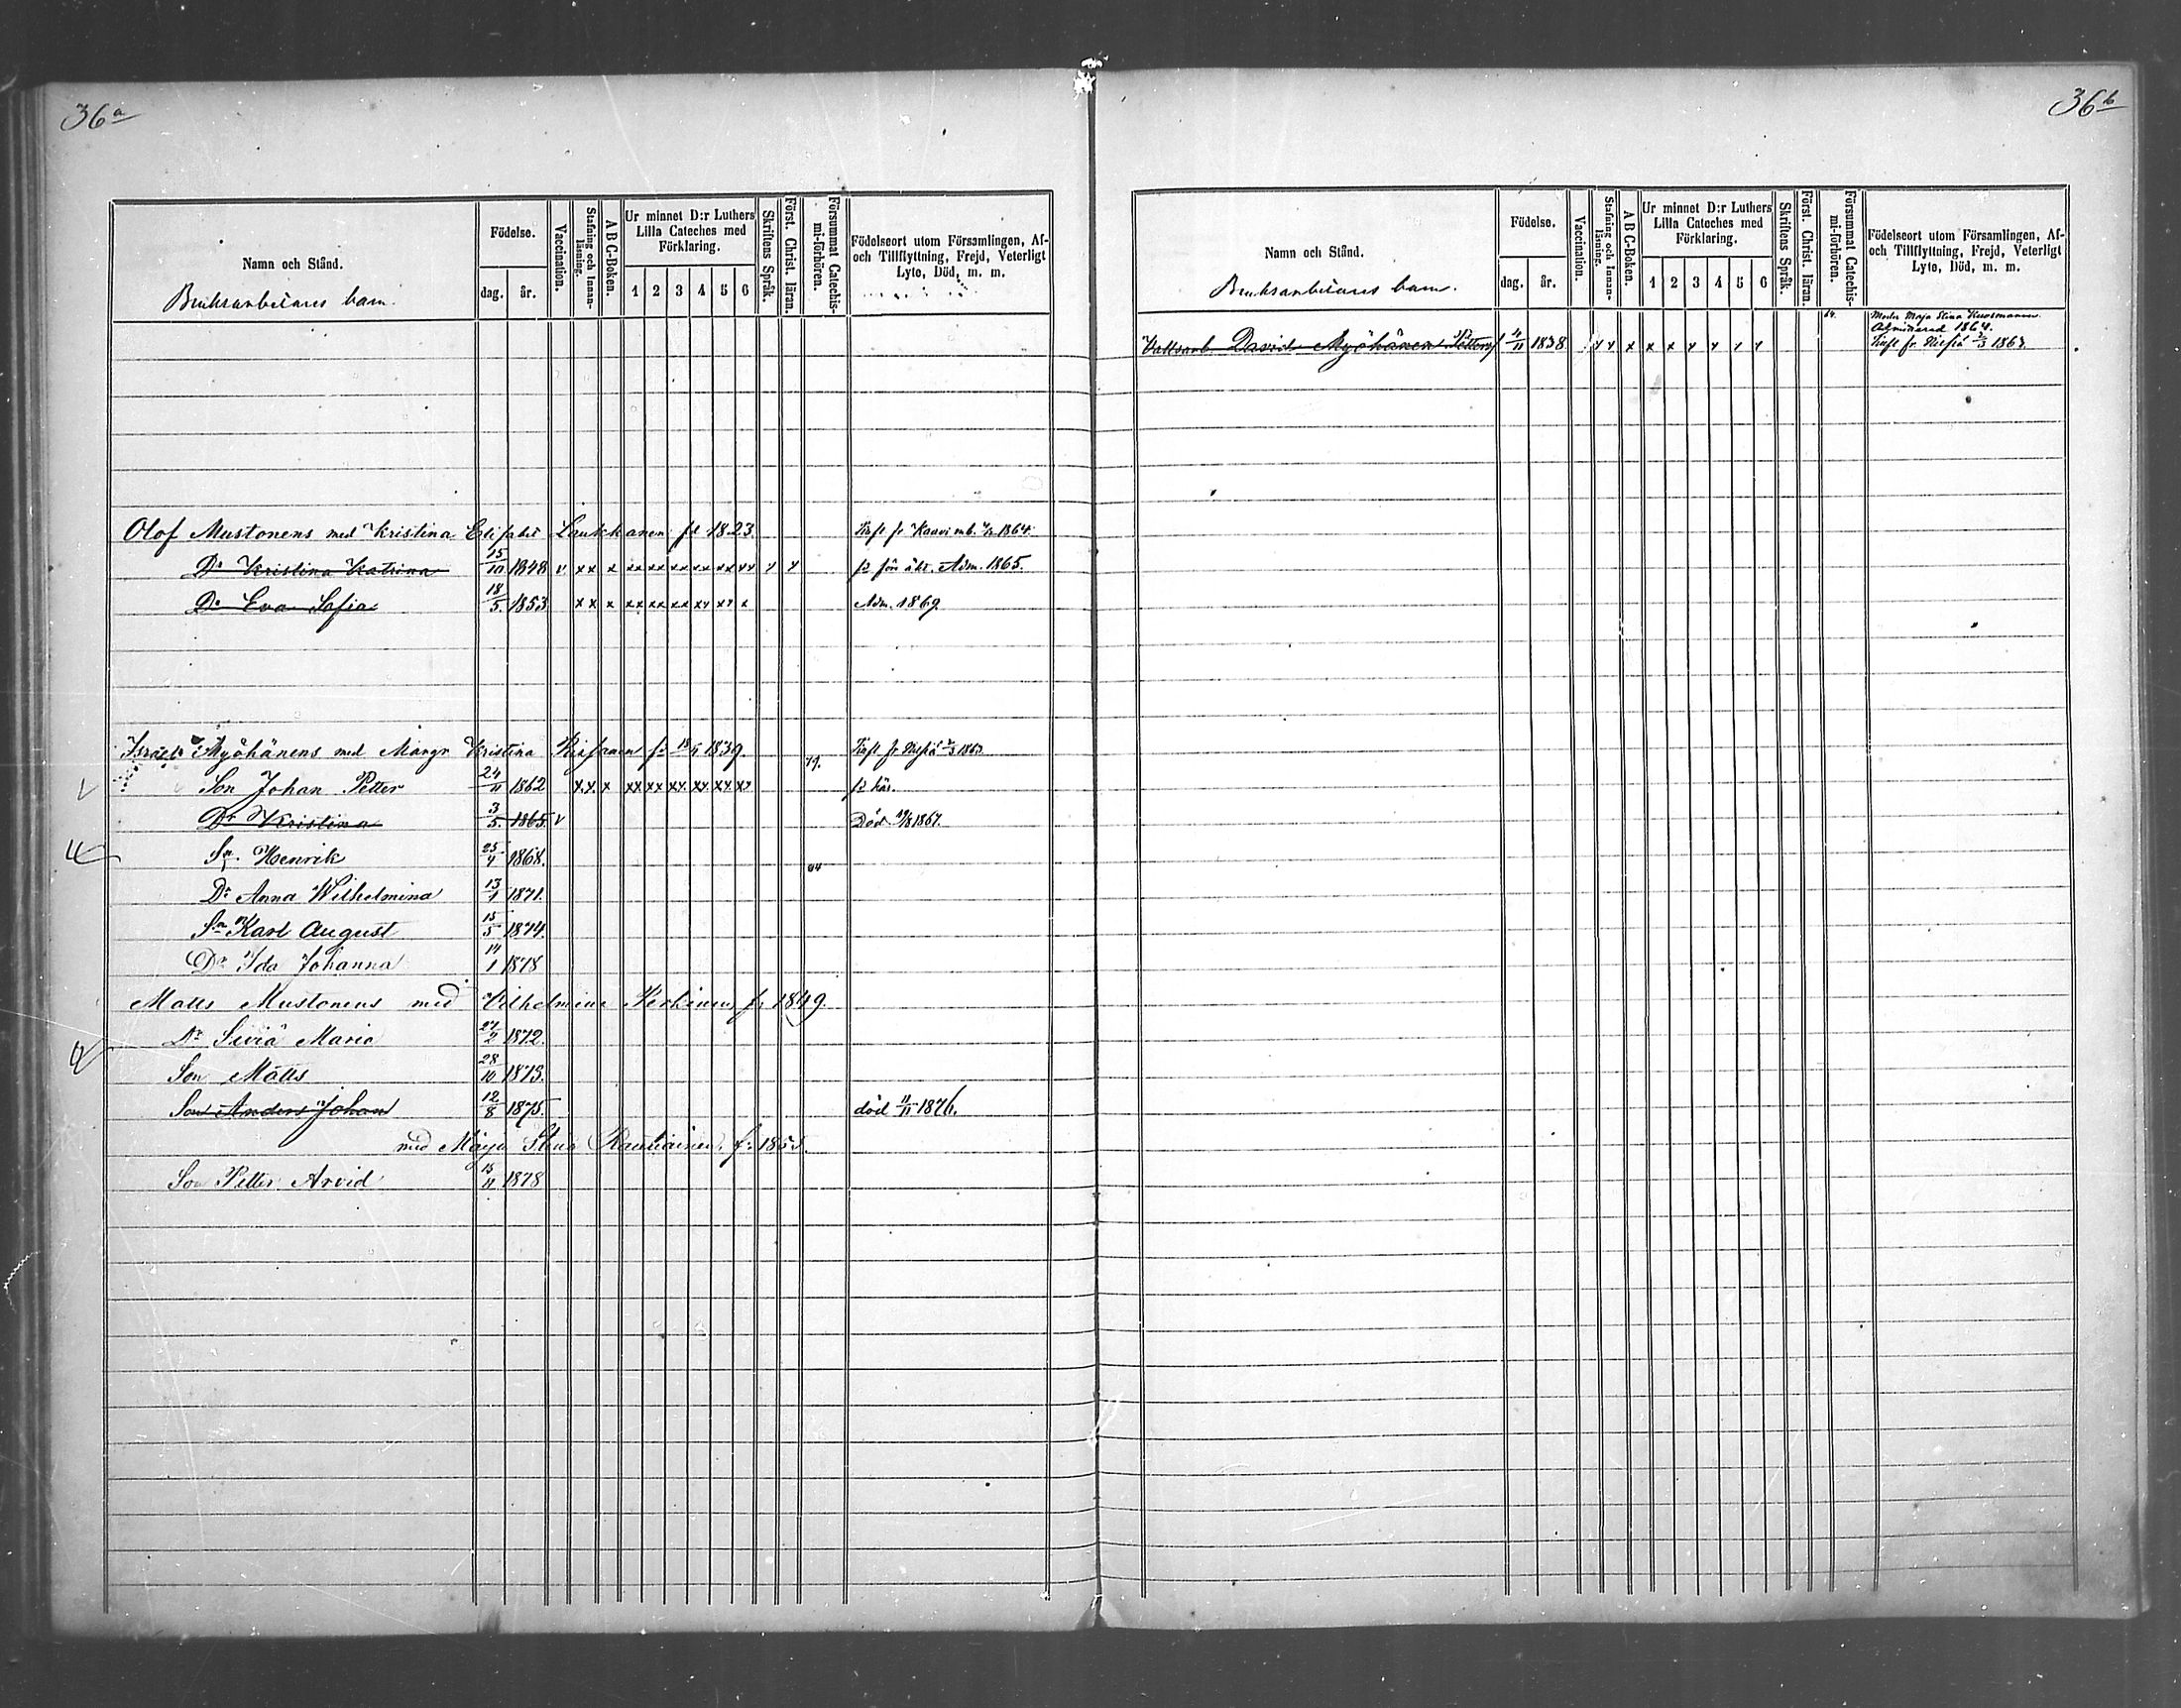 36a
Namn och Stånd.
Bruksarbetares barn.
Födelse.
dag. år.
Vaccination.
Stafning och Innan-läsning.
ABC-Boken.
Ur minnet D:r Luthers Lilla Cateches med Förklaring.
1 2 3 4 5 6
Skriftens Språk.
Först. Christ. läran.
Försummat Catechis-mi-förhören.
Födelseort utom Församlingen, Af-
och Tillflyttning, Frejd, Veterligt
Lyte, Död, m. m.
Olof Mustonens med Kristina Elisabet Laukkanen fd 1823 Infl. fr Kaavi 1864
Dr Kristina Katrina 15/10 1848 v xx x xx xx xx xx xx xx x x Adm. 1865.
Dr Eva Sofia 18/5 1853 xx x xx xx xx xx xx x Adm. 1869
Israel Myöhänens med Margr Kristina f. 1839. Infl. fr Nilsiä 1863
Son Johan Petter 24/11 1862 xx x xx xx xx xx xx xx 79. fd här.
Dr Kristina 3/5 1865 v Död 1867.
Sn Henrik 25/4 1868. 84
Dr Anna Wilhelmina 13/1 1871.
Sn Karl August 15/5 1874.
Dr Ida Johanna 14/1 1878
Matts Mustonens med Vilhelmina f. 1849.
Dr Maria 27/2 1872.
Son Matts 28/10 1873.
Son Anders Johan 12/8 1875. död 11/11 1876.
med Maja Stina Rautiainen f. 185
Son Petter Arvid 15/11 1878
36b
Namn och Stånd.
Bruksarbetares barn.
Födelse.
dag. år.
Vaccination.
Stafning och Innan-läsning.
ABC-Boken.
Ur minnet D:r Luthers Lilla Cateches med Förklaring.
1 2 3 4 5 6
Skriftens Språk.
Först. Christ. läran.
Försummat Catechis-mi-förhören.
Födelseort utom Församlingen, Af-
och Tillflyttning, Frejd, Veterligt
Lyte, Död, m. m.
64. Moder Maja Stina
Admitterad 1864.
David Myöhänen 4/11 1838 x x x x x x x x x Infl. fr Nilsiä 1863.